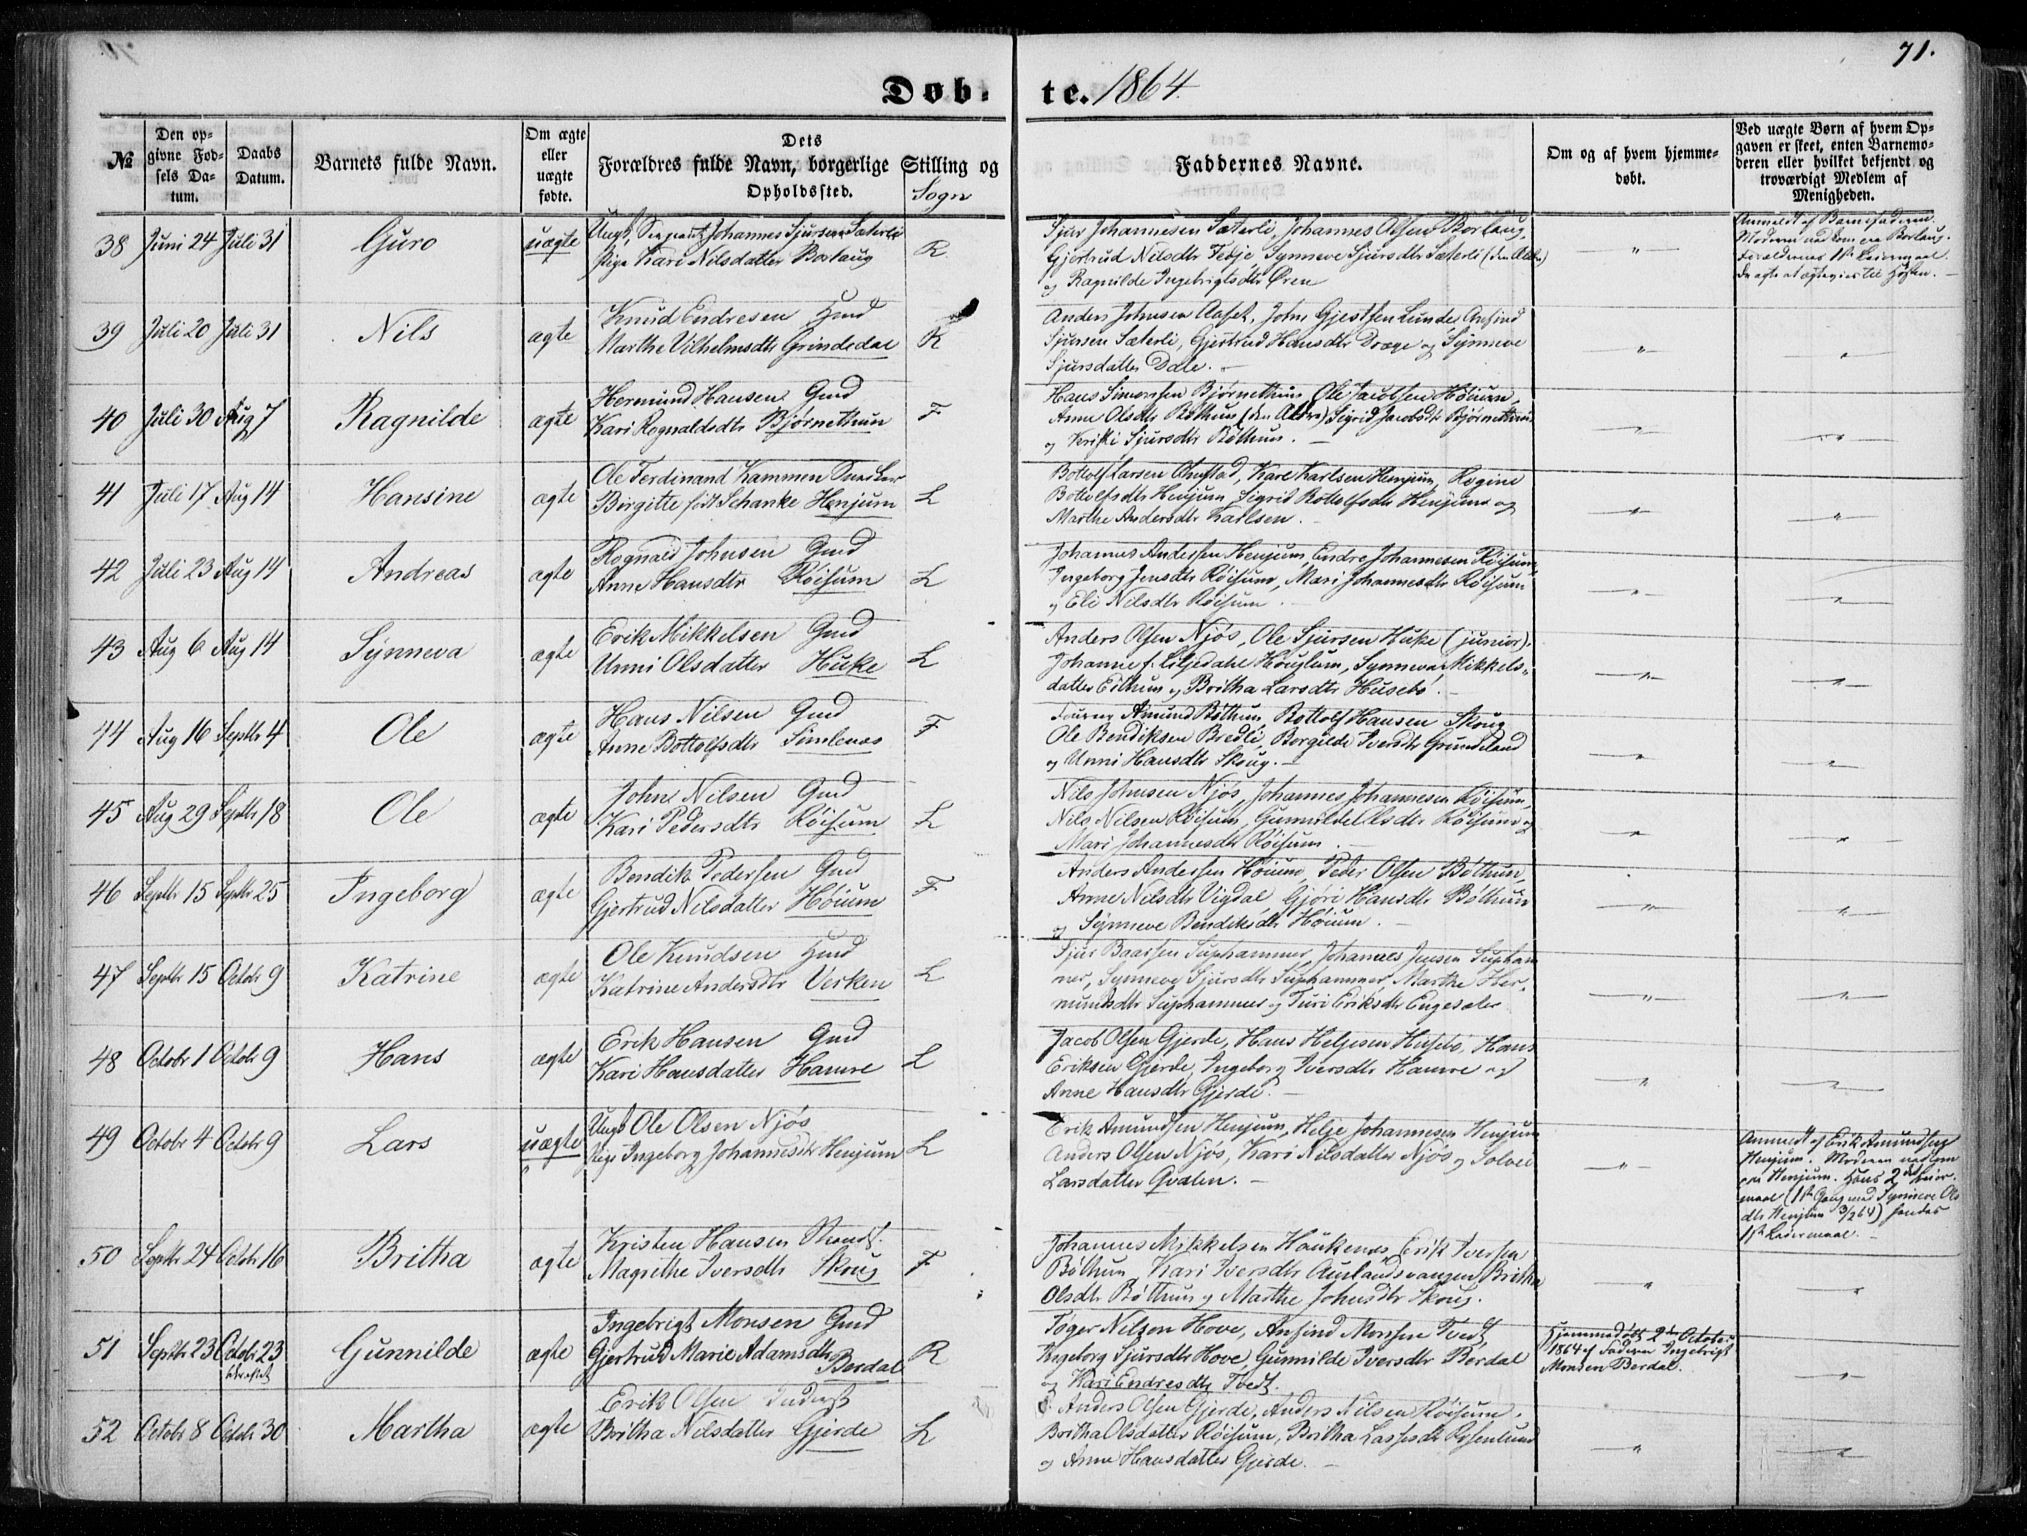 71.
Døb- te. 1864.
№
Den op-
givne Fød-
sels Da-
tum.
Daabs
Datum.
Barnets fulde Navn.
Om ægte
eller
uægte
fødte.
Dets
Forældres fulde Navn, borgerlige Stilling og
Opholdssted.
Sogn
Faddernes Navne.
Om og af hvem hjemme-
døbt.
Ved uægte Børn af hvem Op-
gaven er skeet, enten Barnemo-
deren eller hvilket bekjendt og
troværdigt Medlem af
Menigheden.
38 Juni 24 Juli 31 Guro uægte
Ungk, Sergeant Johannes Sjursen Sæterli
Pige Kari Nilsdatter Borlaug R
Sjur Johannesen Sæterli, Johannes Olsen Borlaug,
Gjertrud Nilsdtr Febje, Synneve Sjursdtr Sæterli (den Ældre)
og Ragnilde Ingebrigtsdtr Øren
"
Anmeldt af Barnefaderen.
Moderen nedkom paa Borlaug.
Forældrenes 1ste Leiermaal.
39 Juli 20 Juli 31 Nils ægte
Knud Endresen Hmd
Marthe Vilhelmsdtr Grindedal R
Anders Johnsen Aaset, John Gjestsen Lunde, Anfind
Sjursen Sæterli, Gjertrud Hansdtr Dræge og Synneve
Sjursdatter Dale.
" "
40 Juli 30 Aug 7 Ragnilde ægte
Hermund Hansen Gmd
Kari Rognaldsdtr Bjørnethun F
Hans Simonsen Bjørnethun, Ole Jacobsen Høium,
Anne Olsdtr Bøthun (den Ældre) Sigrid Jacobsdtr Bjørnethun
og Kristi Sjursdtr Bøthun.
" "
41 Juli 17 Aug 14 Hansine ægte
Ole Ferdinand Kammen
Birgitte født Schanke Henjum L
Bottolf Larsen Ohnstad, Karl Karlsen Henjum, Rogine
Bottolfsdtr Henjum, Sigrid Bottolfsdtr Henjum og
Marthe Andersdtr Karlsen.
" "
42 Juli 23 Aug 14 Andreas ægte
Rognald Johnsen Gmd
Anne Hansdtr Røisum L
Johannes Andersen Henjum, Endre Johannesen Røisum,
Ingeborg Jensdtr Røisum, Mari Johannesdtr Røisum
og Eli Nilsdtr Røisum.
" "
43 Aug 6 Aug 14 Synneva ægte
Erik Mikkelsen Gmd
Unni Olsdatter Huke L
Anders Olsen Njøs, Ole Sjursen Huke (junior),
Johanne f. Liljedahl Houglum, Synneva Mikkels-
datter Eithun og Britha Larsdtr Husebø.
" "
44 Aug 16 Septbr 4 Ole ægte
Hans Nilsen Gmd
Anne Bottolfsdtr Simlenæs F
Amund Bøthun, Bottolf Hansen Skoug
Ole Bendiksen Bredli, Borgilde Iversdtr Grundeland
og Unni Hansdtr Skoug.
" "
45 Aug 29 Septbr 18 Ole ægte
John Nilsen Gmd
Kari Pedersdtr Røisum L
Nils Johnsen Njøs, Johannes Johannesen Røisum,
Nils Nilsen Røisum, Gunnilde Olsdtr Røisum og
Mari Johannesdtr Røisum.
" "
46 Septbr 15 Septbr 25 Ingeborg ægte
Bendik Pedersen Gmd
Gjertrud Nilsdatter Høium F
Anders Andersen Høium, Peder Olsen Bøthun,
Anne Nilsdtr Vigdal, Gjøri Hansdtr Bøthun
og Synneve Bendiksdtr Høium.
" "
47 Septbr 15 Octobr 9 Katrine ægte
Ole Knudsen Hmd
Katrine Andersdtr Verken L
Sjur Baarsen Suphammer, Johannes Jensen Supham-
mer, Synneve Sjursdtr Suphammer, Marthe Her-
mundsdtr Suphammer og Turi Eriksdtr Engesæter
" "
48 Octobr 1 Octobr 9 Hans ægte
Erik Hansen Gmd
Kari Hansdatter Hamre L
Jacob Olsen Gjerde, Hans Helgesen Husebø, Hans
Eriksen Gjerde, Ingeborg Iversdtr Hamre og
Anne Hansdtr Gjerde.
" "
49 Octobr 4 Octobr 9 Lars uægte
Ungk Ole Olsen Njøs
Pige Ingeborg Johannesdtr Henjum L
Erik Amundsen Henjum, Helje Johannesen Henjum
Anders Olsen Njøs, Kari Nilsdatter Njøs og Solvei
Larsdatter Qvalen.
"
Anmeldt af Erik Amundsen
Henjum. Moderen nedkom
paa Henjum. Hans 2det Leier-
maal (1ste Gang med Synneve Ols
dtr Henjum 3/2 64) hendes
1ste Leiermaal.
50 Septbr 24 Octobr 16 Britha ægte
Kristen Hansen Strands.
Magrethe Iversdtr Skoug F
Johannes Mikkelsen Haukenæs, Erik Iversen
Bøthun, Kari Iversdtr Aurlandsvangen, Britha
Olsdtr Bøthun og Marthe Johnsdtr Skoug.
" "
51 Septbr 23 Octobr 23 Gunnilde ægte
bekræftet
Ingebrigt Monsen Gmd
Gjertrud Marie Adamsdtr
Berdal R
Tøger Nilsen Hove, Anfind Monsen Tvedt,
Ingeborg Sjursdtr Hove, Gunnilde Iversdtr Berdal
og Kari Endresdtr Tvedt.
Hjemmedøbt 2den October
1864 af Faderen Ingebrigt
Monsen Berdal.
"
52 Octobr 8 Octobr 30 Martha ægte
Erik Olsen Inderst
Britha Nilsdatter Gjerde L
Anders Olsen Gjerde, Anders Nilsen Røisum,
Britha Olsdatter Røisum, Britha Lassesdtr Rosenlund
og Anne Hansdatter Gjerde.
" "